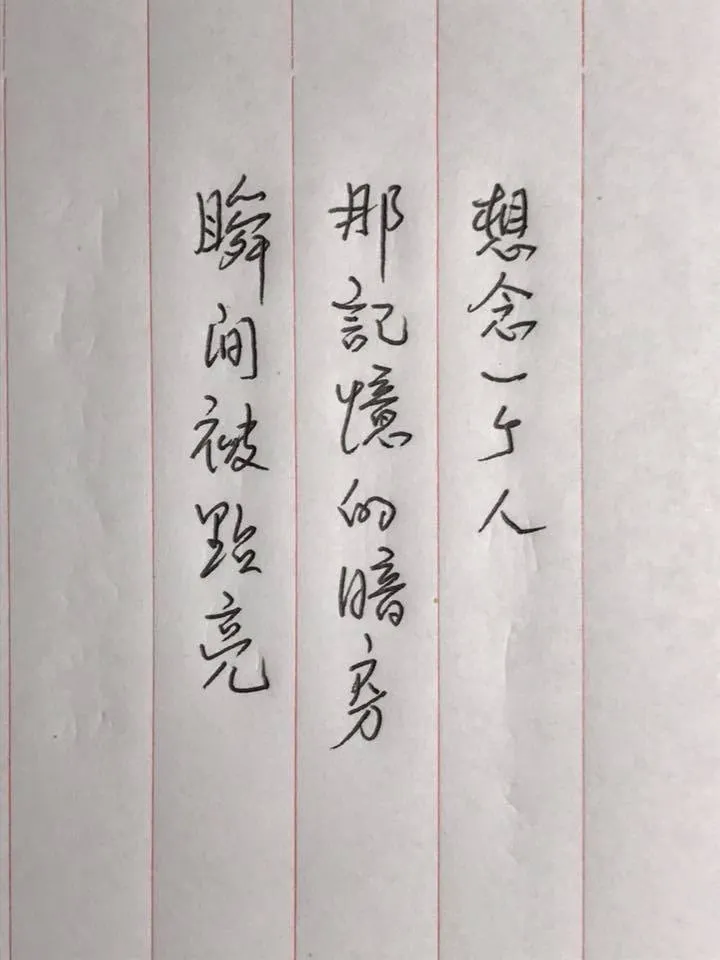 想念一个人
那記憶的暗房
瞬间被點亮